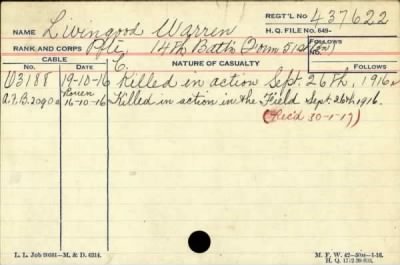 REGT'L NO. 437622
NAME Livingood Warren H. Q. FILE No. 649-
RANK AND CORPS Pte. 14th Batt'n Form 51st (Bn) FOLLOWS
CABLE C. NATURE OF CASUALTY
No. DATE FOLLOWS
U3188 19-10-16 Killed in action Sept. 26th, 1916
Rouen
A.F.B. 2090a 16-10-16 Killed in action in the Field Sept. 26th 1916.
(Rec'd 30-1-17)
L. L. Job 90081—M. & D. 6214. M. F. W. 42—50M—1-16.
H. Q. 1772-39-893.